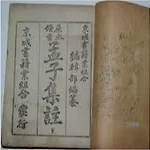 京城書籍業組合
編輯部編纂
原本
備旨
孟子集註
京城書籍業組合 發行